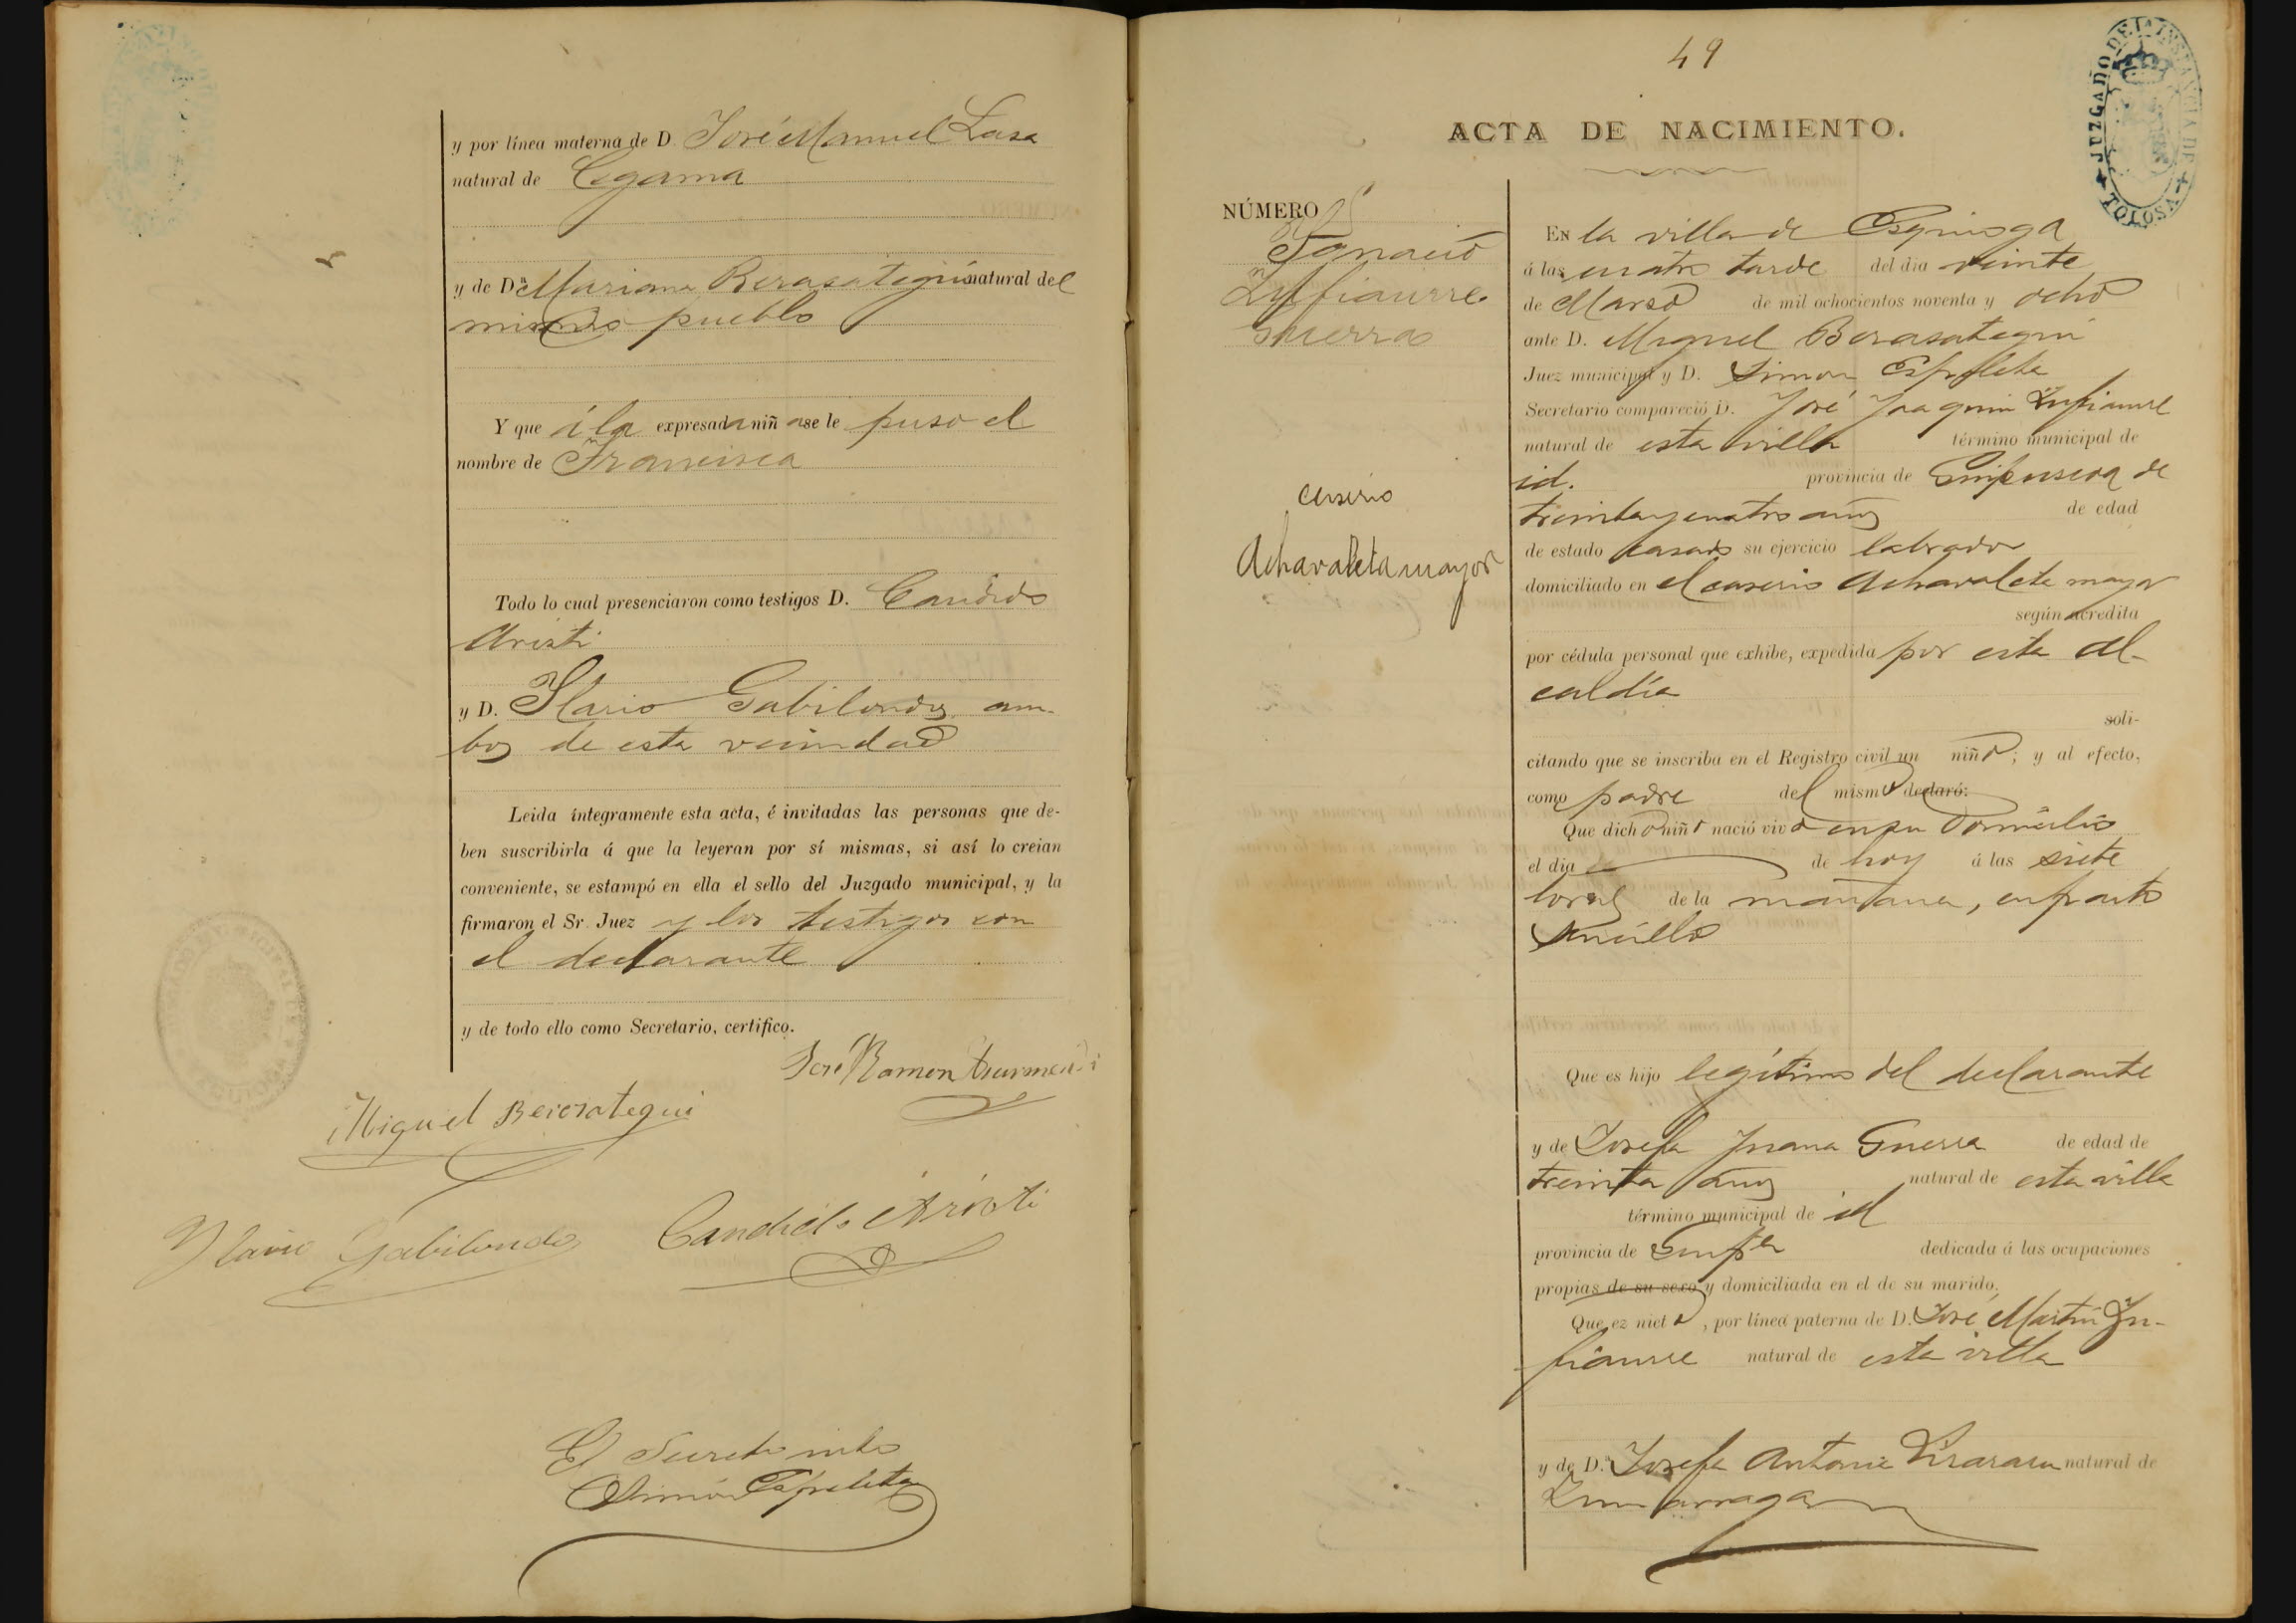 y por línea materna de D. José Manuel Lasa
natural de Cegama
y de Dª Mariana Berasategui natural del
mismo pueblo
Y que á la expresada niña se le puso el
nombre de Francisca
Todo lo cual presenciaron como testigos D. Candido
Aristi
y D. Ylario Gabilondo, am-
bos de esta vecindad
Leida íntegramente esta acta, é invitadas las personas que de-
ben suscribirla á que la leyeran por sí mismas, si así lo creian
conveniente, se estampó en ella el sello del Juzgado municipal, y la
firmaron el Sr. Juez y los testigos con
el declarante
y de todo ello como Secretario, certifico.
José Ramon
Miguel Berasategui
Ylario Gabilondo
Candido Aristi
El Secreto into
Simón Espeleta
49
ACTA DE NACIMIENTO.
JUZGADO DE 1ª INSTANCIA DE
TOLOSA
NÚMERO
Ygnacio
Zufiaurre
Guerra
caserio
Achavaleta mayor
EN la villa de Esquioga
á las cuatro tarde del dia veinte
de Marso de mil ochocientos noventa y ocho
ante D. Miguel Berasategui
Juez municipal y D. Simon Espeleta
Secretario compareció D. José Joaquin Zufiaurre
natural de esta villa término municipal de
id. provincia de Guipuscoa de
treinta y cuatro años de edad
de estado casado su ejercicio labrador
domiciliado en el caserio Achavaleta mayor
según acredita
por cédula personal que exhibe, expedida por esta al-
caldía
soli-
citando que se inscriba en el Registro civil un niño; y al efecto,
como padre del mismo declaró:
Que dicho niño nació vivo en su domicilio
el dia de hoy á las siete
horas de la mañana, en parto
sencillo
Que es hijo legítimo del declarante
y de Josefa Juana Guerra de edad de
treinta años natural de esta villa
término municipal de id
provincia de Guipª dedicada á las ocupaciones
propias de su sexo y domiciliada en el de su marido.
Que ez nieto, por línea paterna de D. José Martin Zu-
fiaurre natural de esta villa
y de D.ª Josefa Antonia Lizarazu natural de
Zumarraga